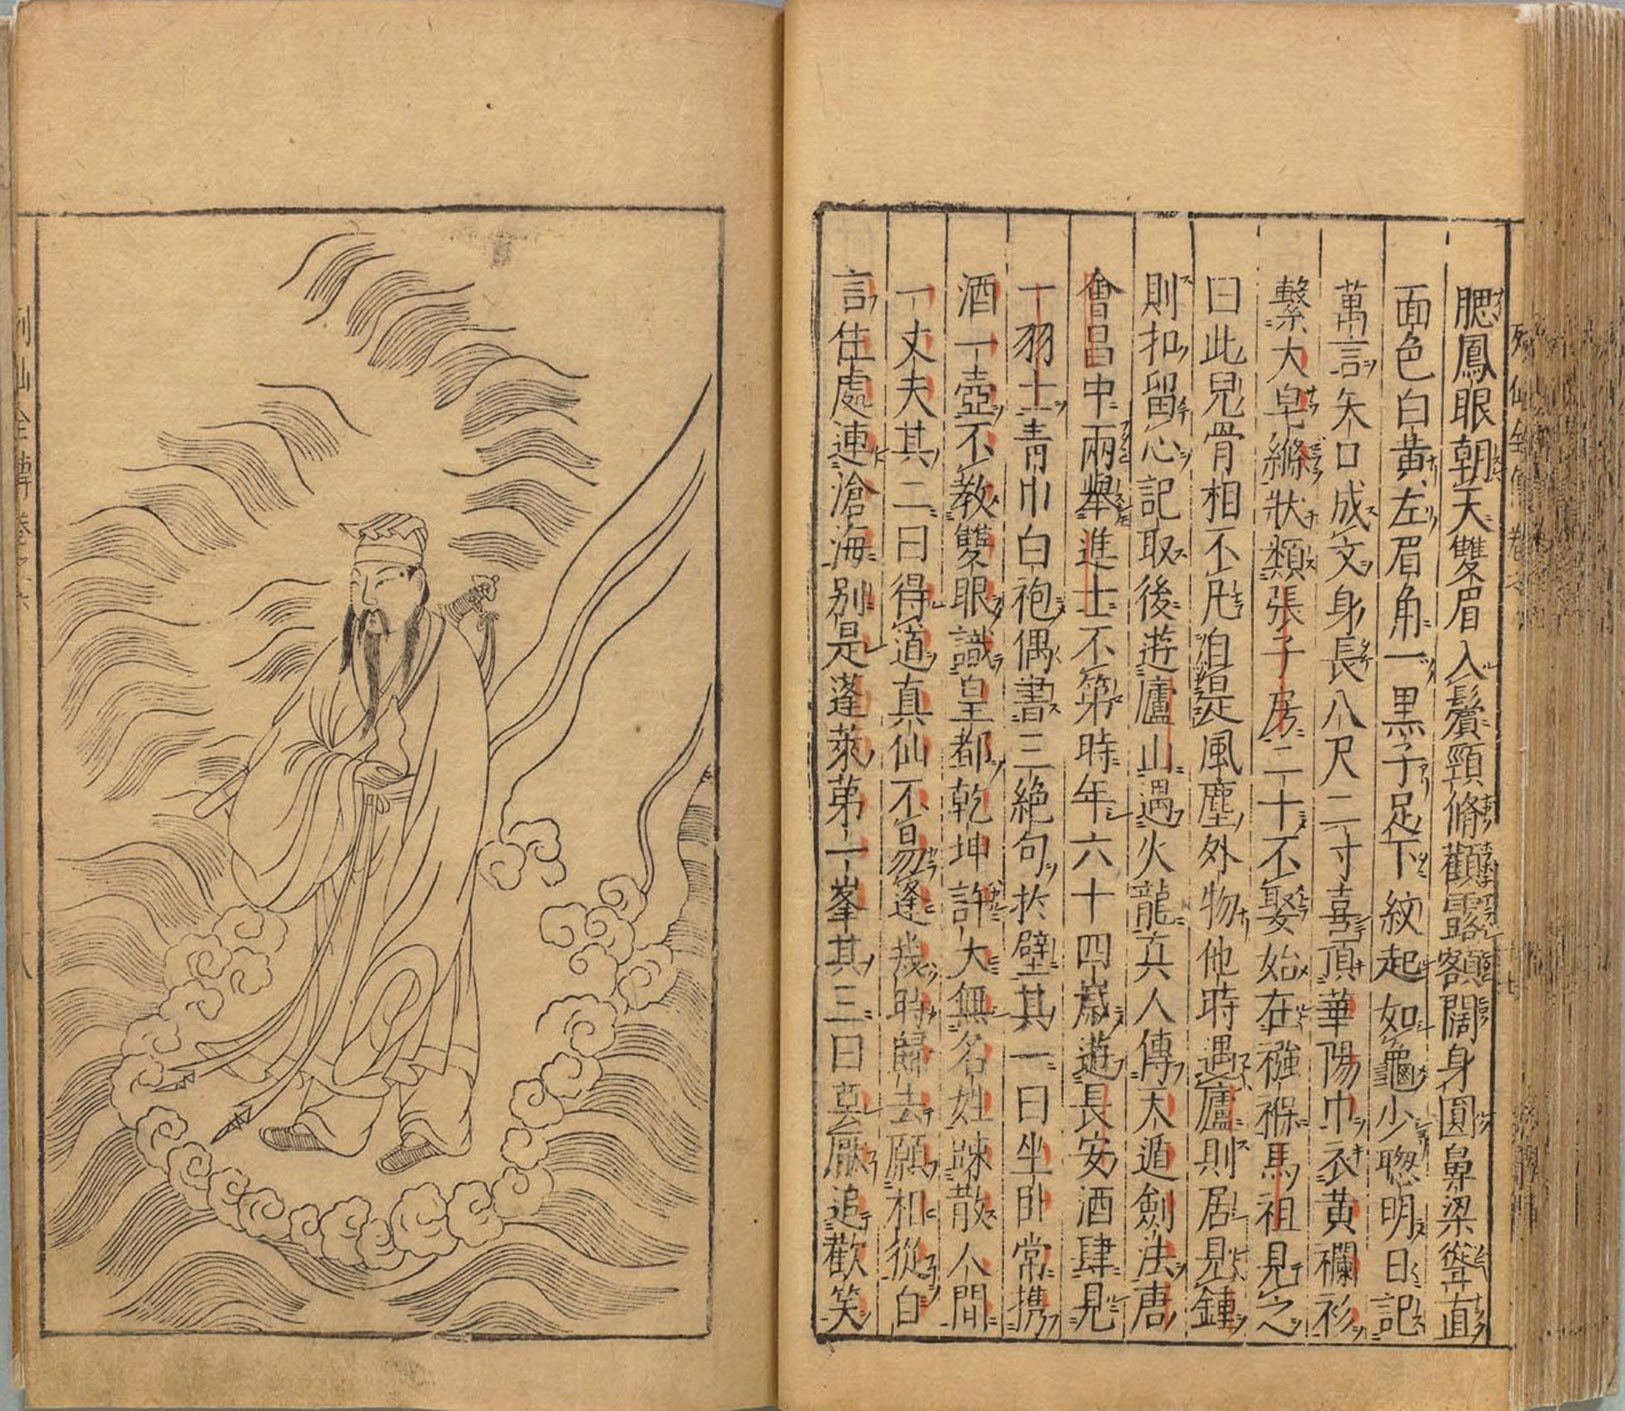 列仙全傳 卷之六
腮鳳眼朝天雙眉入鬢頸脩顴露額闊身圓鼻梁聳直
面色白黃左眉角一黑子足下紋起如龜少聰明日記
萬言矢口成文身長八尺二寸喜頂華陽巾衣黃襴衫
繫大皁絛狀類張子房二十不娶始在襁褓馬祖見之
曰此兒骨相不凡洎是風塵外物他時遇廬則居見鍾
則扣留心記取後遊廬山遇火龍真人傳天遁劍法唐
會昌中兩舉進士不第時年六十四歲遊長安酒肆見
一羽士青巾白袍偶書三絕句於壁其一曰坐臥常携
酒一壺不教雙眼識皇都乾坤許大無名姓疎散人間
一丈夫其二曰得道真仙不易逢幾時歸去願相從自
言住處連滄海別是蓬萊第一峯其三曰莫厭追歡笑
列仙全傳 卷之六 八